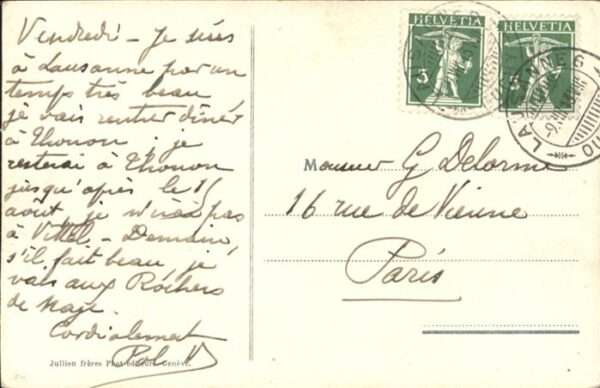 Vendredi - Je suis
à Lausanne par un
temps très beau
je vais rentrer dîner
à Thonon, je
resterai à Thonon
jusqu'après le 15
août, je n'irai pas
à Vittel - Demain,
s'il fait beau, je
vais aux Rochers
de Naye.
Cordialement
Jullien frères Phot-éditeurs Genève.
HELVETIA
5
HELVETIA
5
LAUSANNE 6
Monsieur G Delorme
16 rue de Vienne
Paris